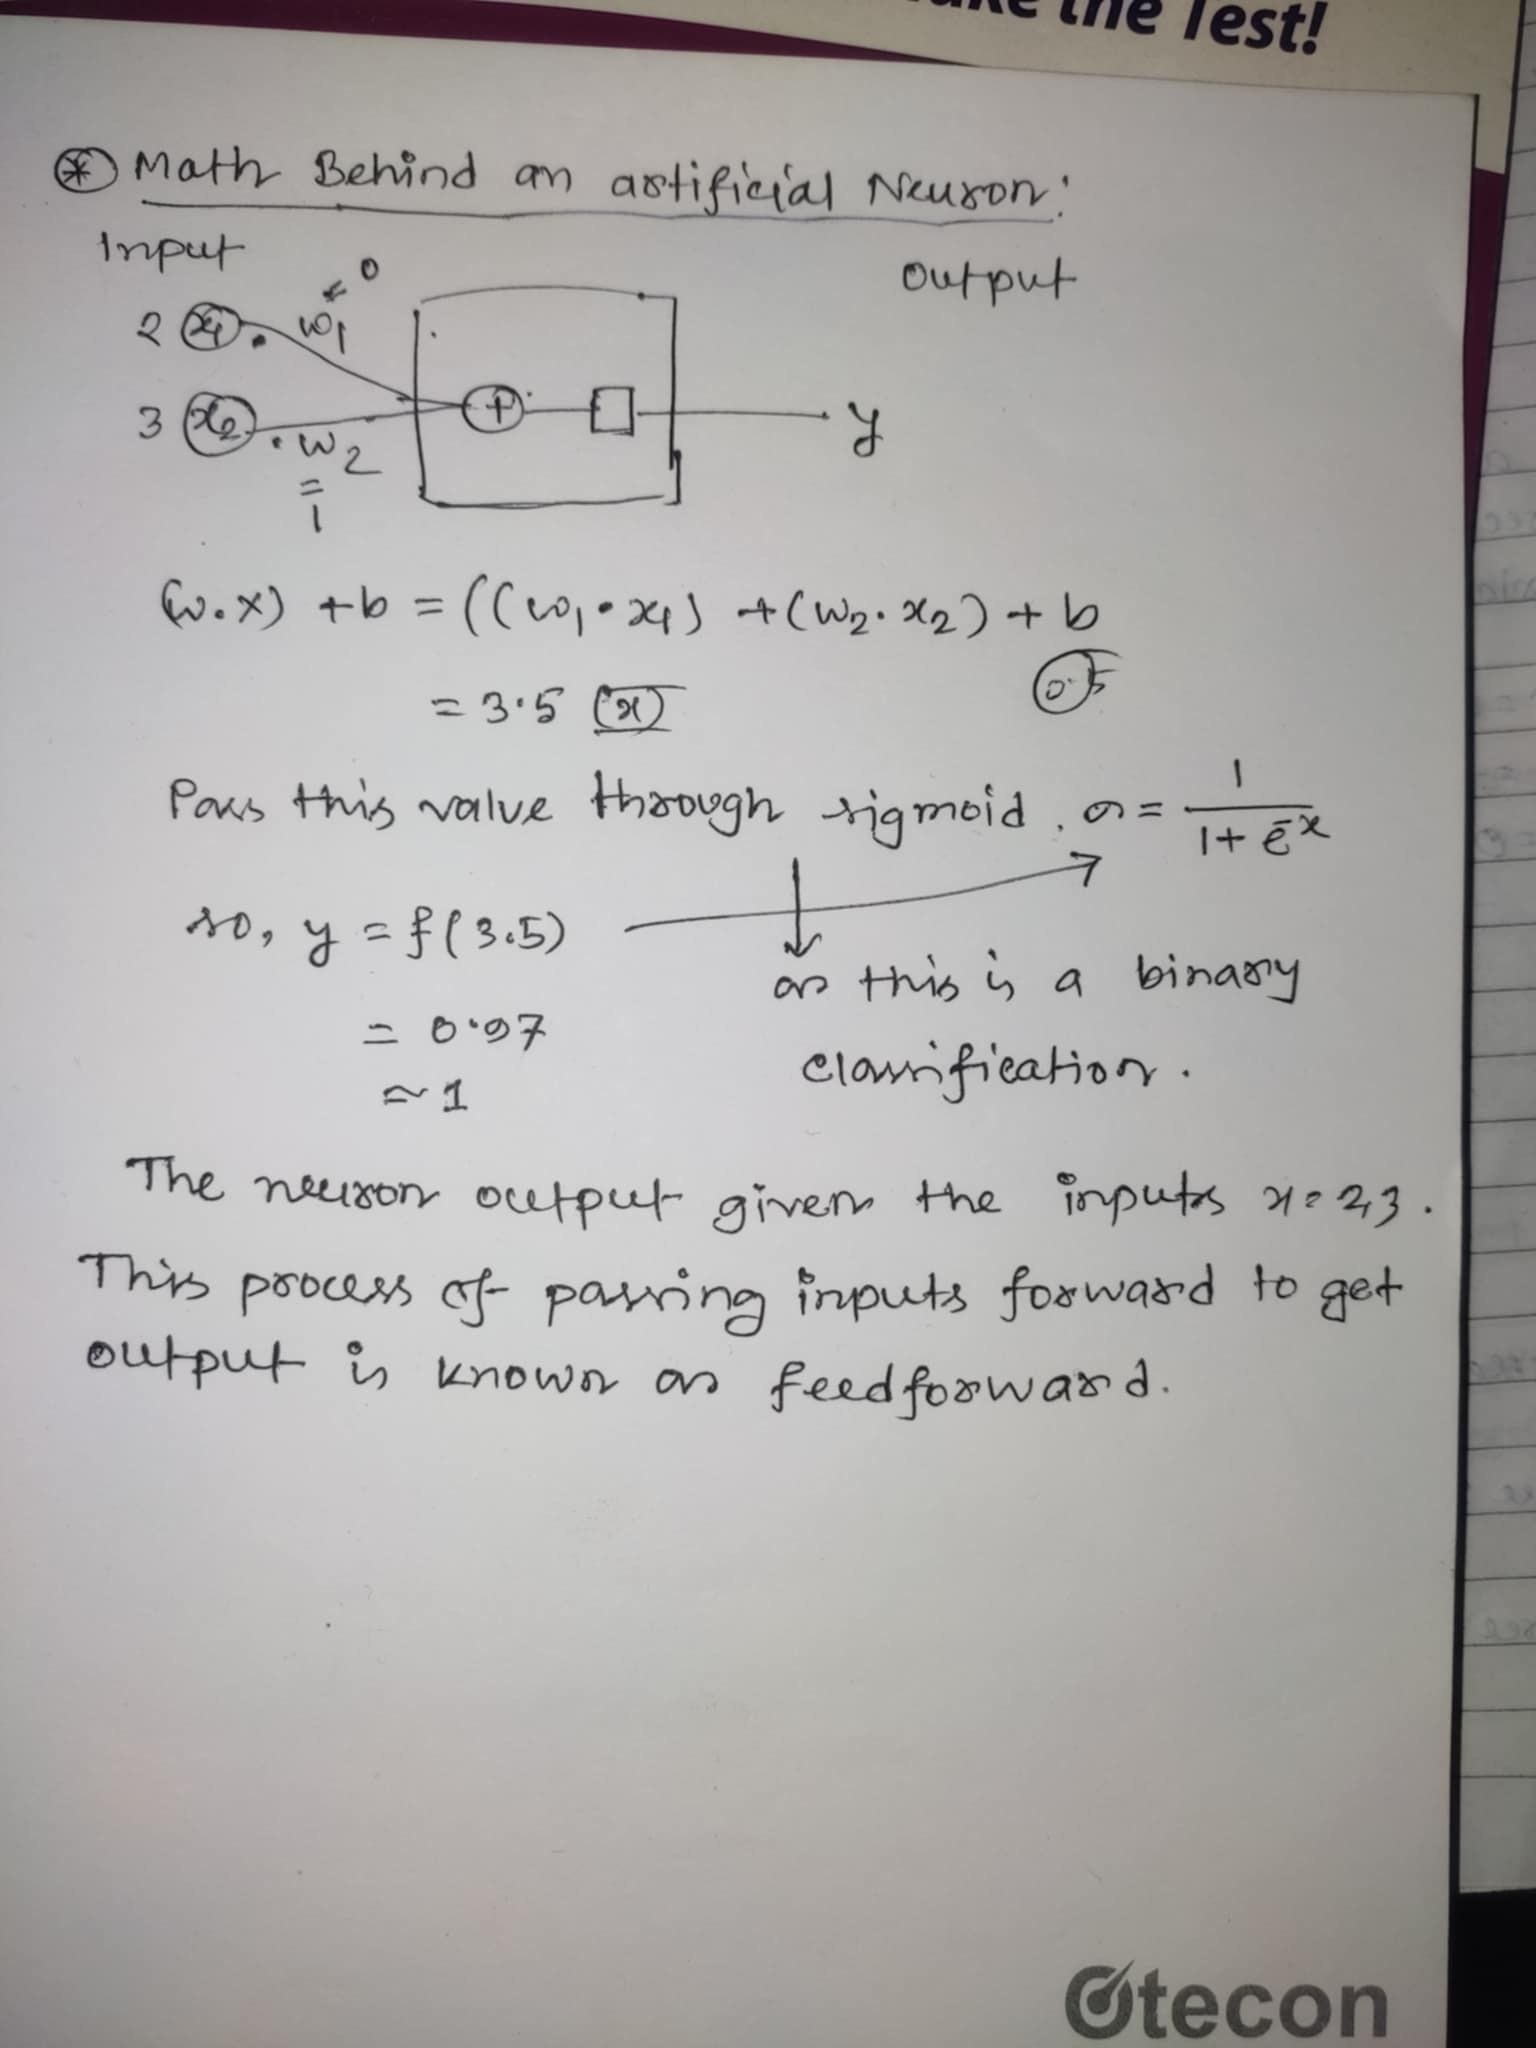 the Test!
Math Behind an artificial Neuron:
Input
Output
2 x1 . w1 = 0
3 x2 . w2 = 1
+
y
(w.x) + b = ((w1 . x1) + (w2 . x2) + b
0.5
= 3.5 (x)
Pass this value through sigmoid, σ = 1 / 1 + e^-x
so, y = f(3.5)
as this is a binary
= 0.97
classification.
≈ 1
The neuron output given the inputs x = 2,3.
This process of passing inputs forward to get
output is known as feedforward.
Otecon